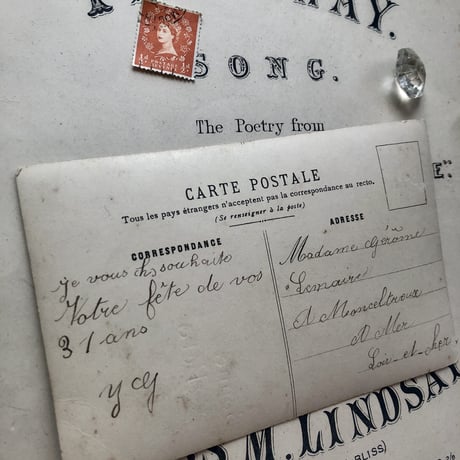 AY.
SONG.
The Poetry from
E"
CARTE POSTALE
Tous les pays étrangers n'acceptent pas la correspondance au recto.
(Se renseigner à la poste)
CORRESPONDANCE
Je vous souhaite
Votre fête de vos
31 ans
ADRESSE
Madame Gérôme
Lemaire
A
A Mer
Loir-et-Cher
M. LINDSAY
BLISS)